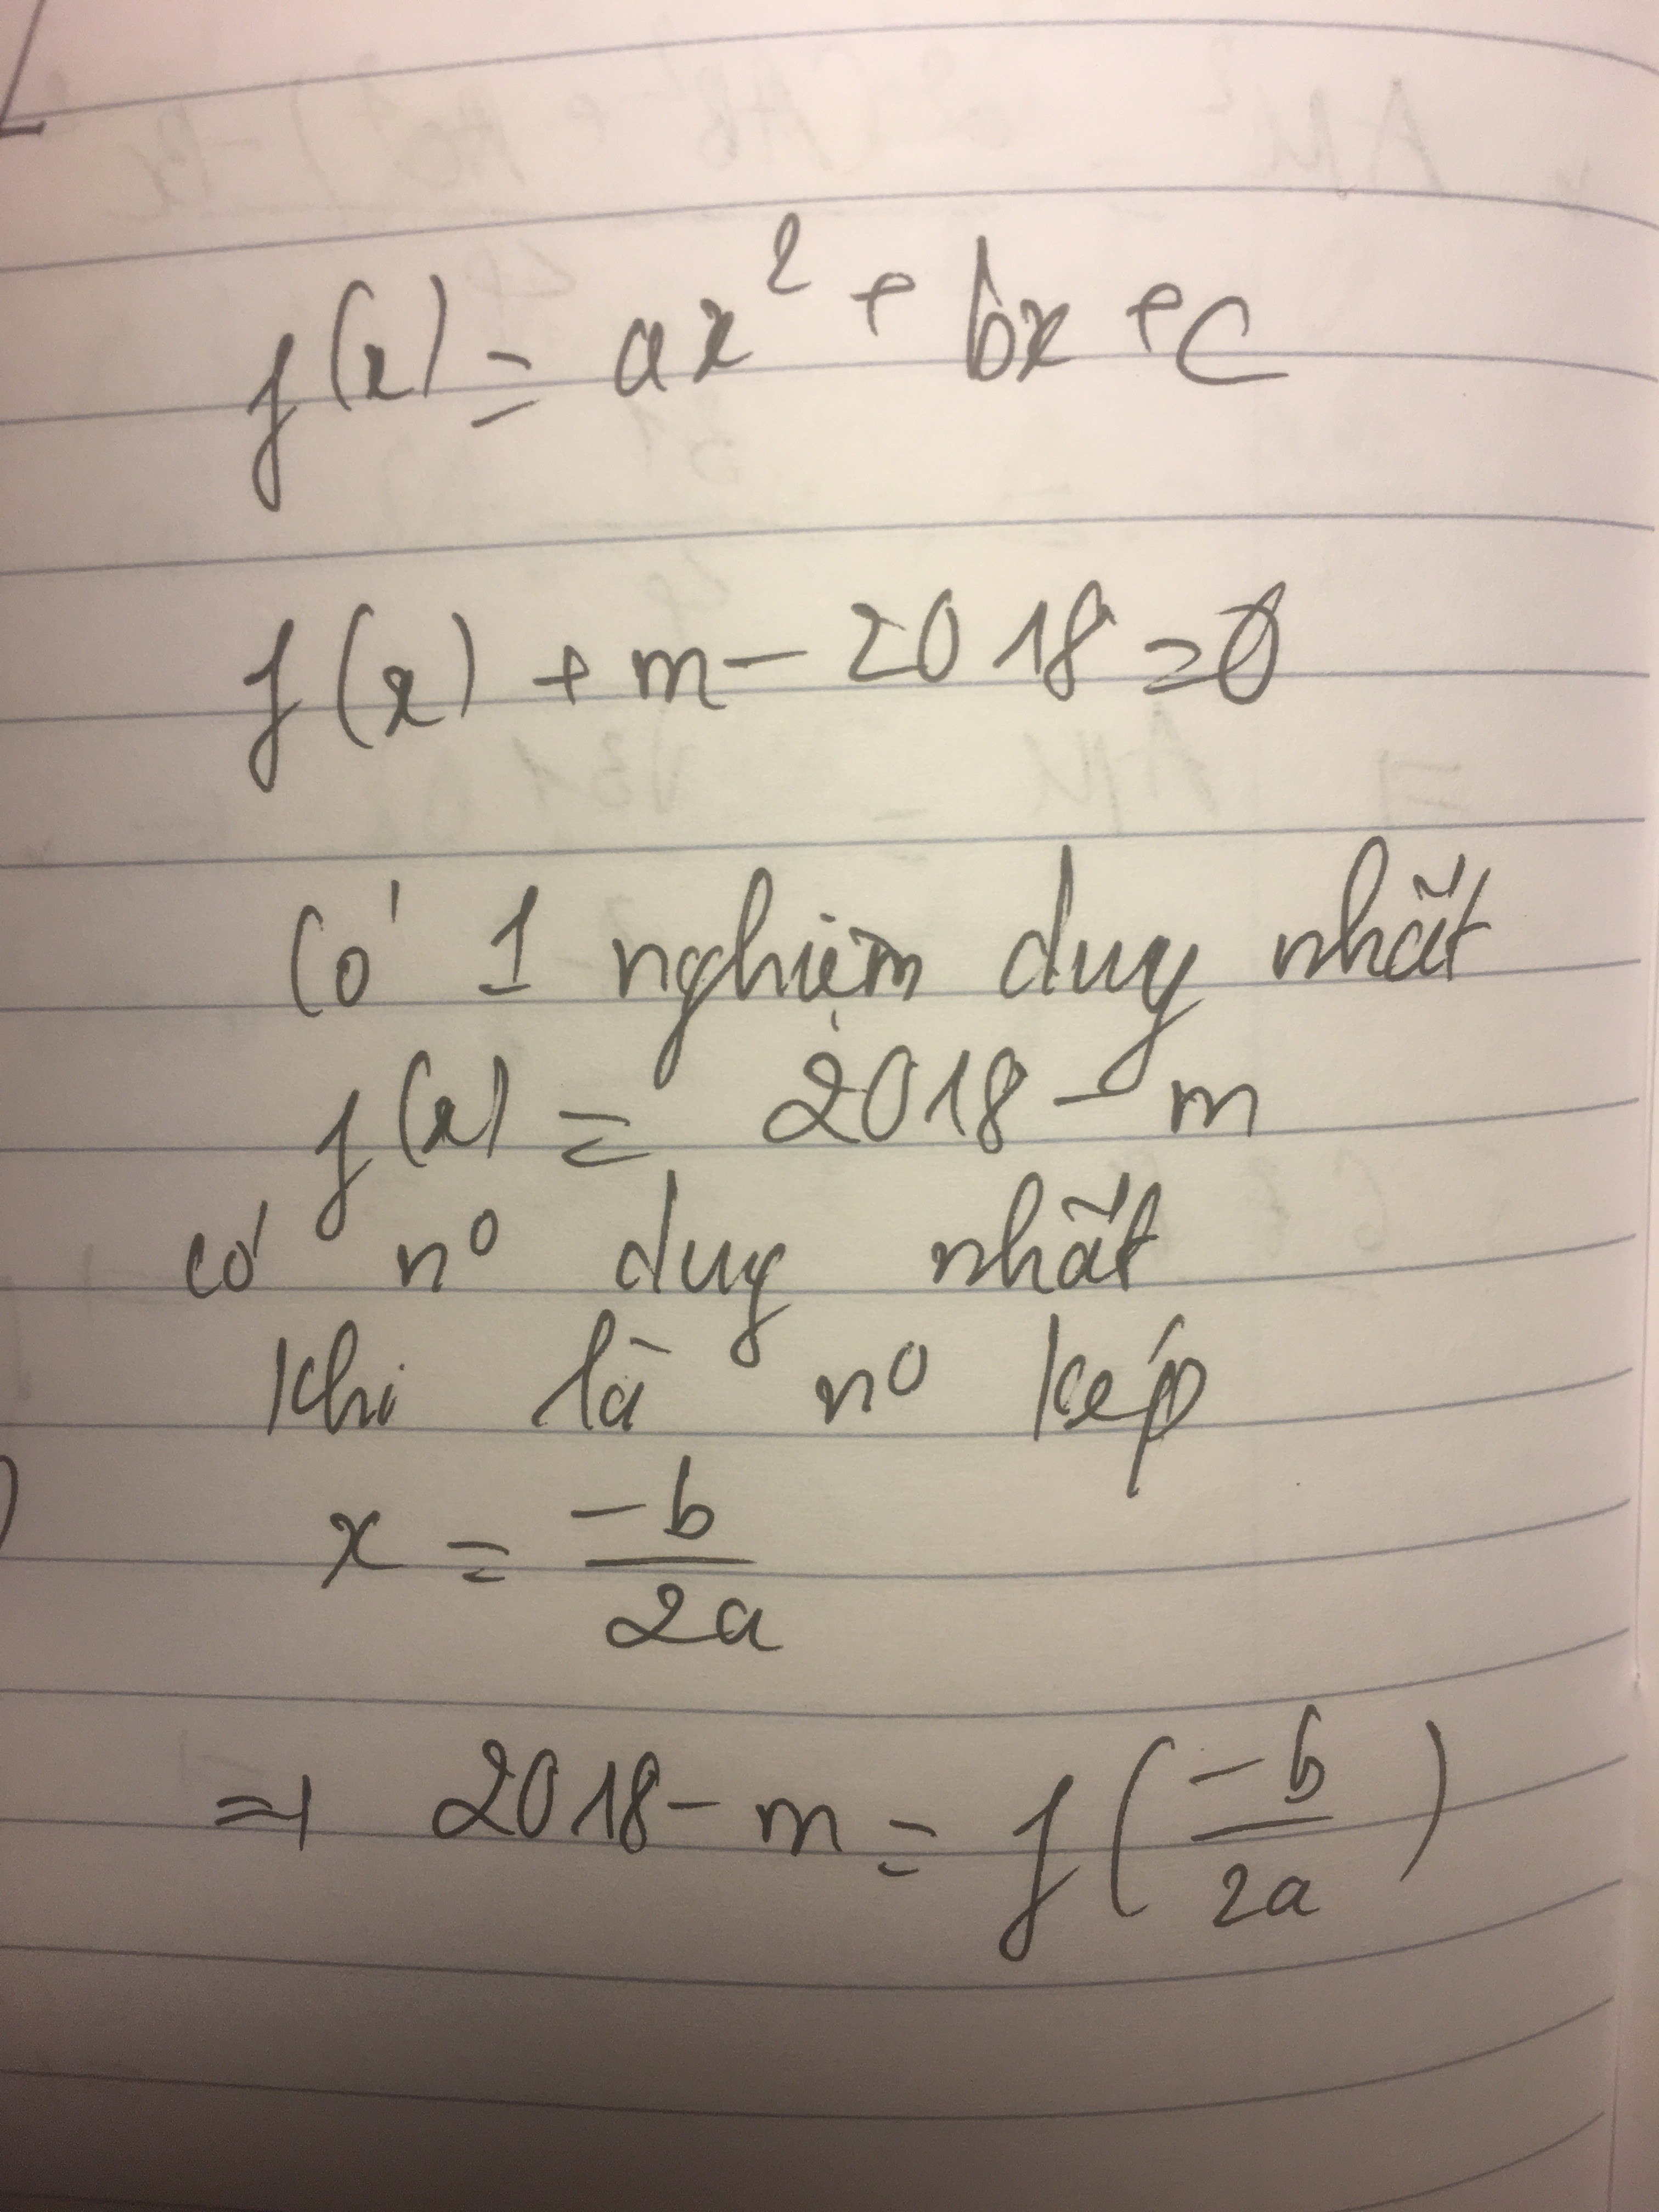 f(x) = ax² + bx + c
f(x) + m - 2018 = 0
Có 1 nghiệm duy nhất
f(x) = 2018 - m
có n⁰ duy nhất
khi là n⁰ kép
x = -b/2a
=> 2018 - m = f(-b/2a)